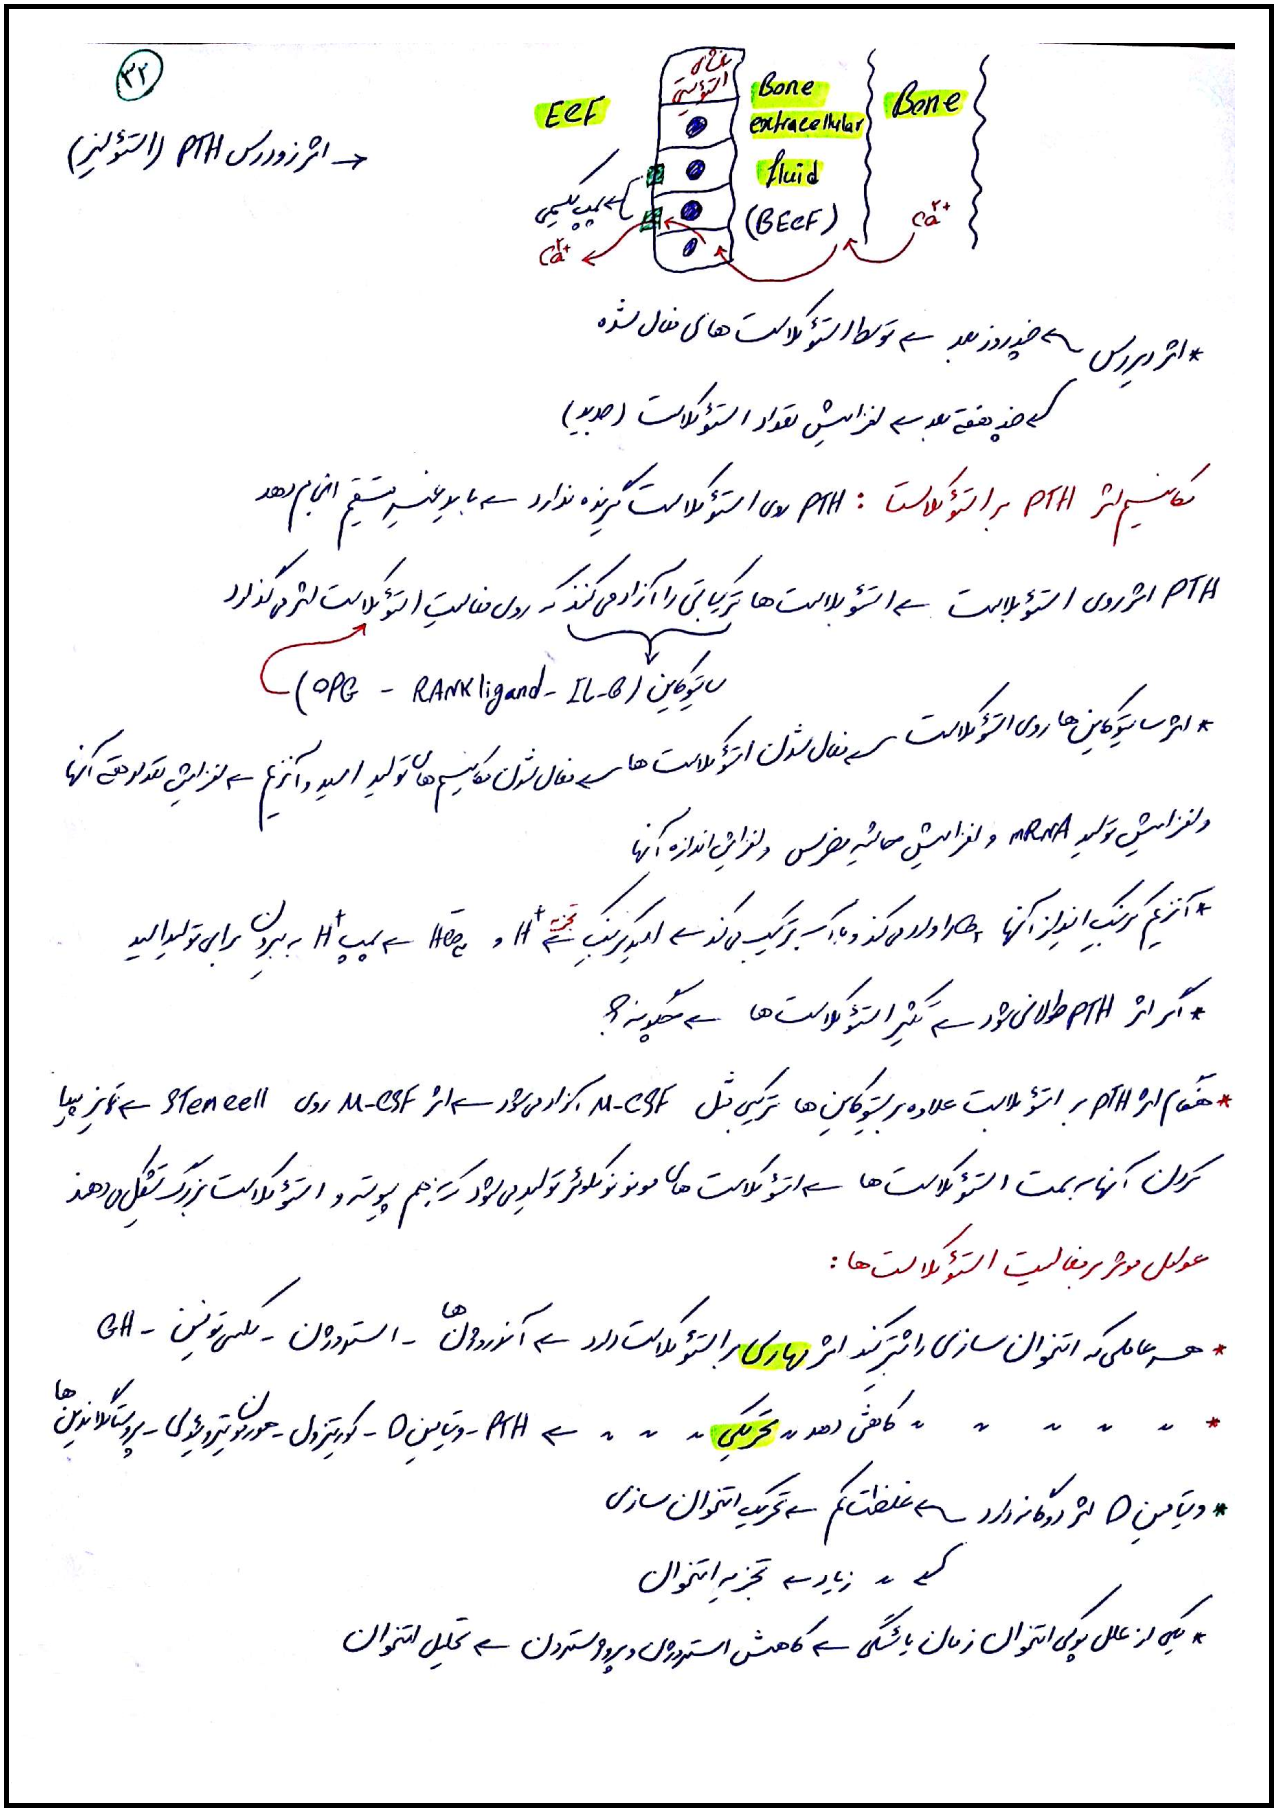 ۳۲
غشاء استئوسیتی
ECF
Bone extracellular fluid (BECF)
Bone
پمپ کلسیمی
Ca²⁺
Ca²⁺
→ اثر زودرس PTH (استئولیز)
* اثر دیررس ← چند روز بعد ← توسط استئوکلاست های فعال شده
← چند هفته بعد ← افزایش تعداد استئوکلاست (جدید)
مکانیسم اثر PTH بر استئوکلاست : PTH روی استئوکلاست گیرنده ندارد ← باید غیر مستقیم انجام دهد
PTH اثر روی استئوبلاست ← استئوبلاست ها ترکیباتی را آزاد می کنند که روی فعالیت استئوکلاست اثر می گذارد
سایتوکاین (OPG - RANK ligand - IL-6)
* اثر سایتوکاین ها روی استئوکلاست ← فعال شدن استئوکلاست ها ← فعال شدن مکانیسم های تولید اسید و آنزیم ← افزایش تعداد هسته آنها
و افزایش تولید mRNA و افزایش حاشیه مضرس و افزایش اندازه آنها
* آنزیم کربنیک انیدراز آنها CO₂ را وارد می کند و با آب ترکیب می کند ← اسید کربنیک ← تجزیه H⁺ و HCO₃⁻ ← پمپ H⁺ به بیرون برای تولید اسید
* اگر اثر PTH طولانی شود ← تکثیر استئوکلاست ها ← چگونه؟
* هنگام اثر PTH بر استئوبلاست علاوه بر سیتوکاین ها ترکیبی مثل M-CSF آزاد می شود ← اثر M-CSF روی Stem cell ← تمایز پیدا
کردن آنها به سمت استئوکلاست ها ← استئوکلاست های مونونوکلوئر تولید می شود که به هم پیوسته و استئوکلاست بزرگ تشکیل می دهند
عوامل موثر بر فعالیت استئوکلاست ها :
* هر عاملی که استخوان سازی را بیشتر کند اثر مهاری بر استئوکلاست دارد ← آندروژن ها - استروژن - کلسی تونین - GH
* 〃 〃 〃 〃 〃 کاهش دهد 〃 تحریکی 〃 〃 〃 ← PTH - ویتامین D - کورتیزول - هورمون تیروئیدی - پروستاگلاندین ها
* ویتامین D اثر دوگانه دارد ← غلظت کم ← تحریک استخوان سازی
← 〃 زیاد ← تجزیه استخوان
* یکی از علل پوکی استخوان زمان یائسگی ← کاهش استروژن و پروژسترون ← تحلیل استخوان